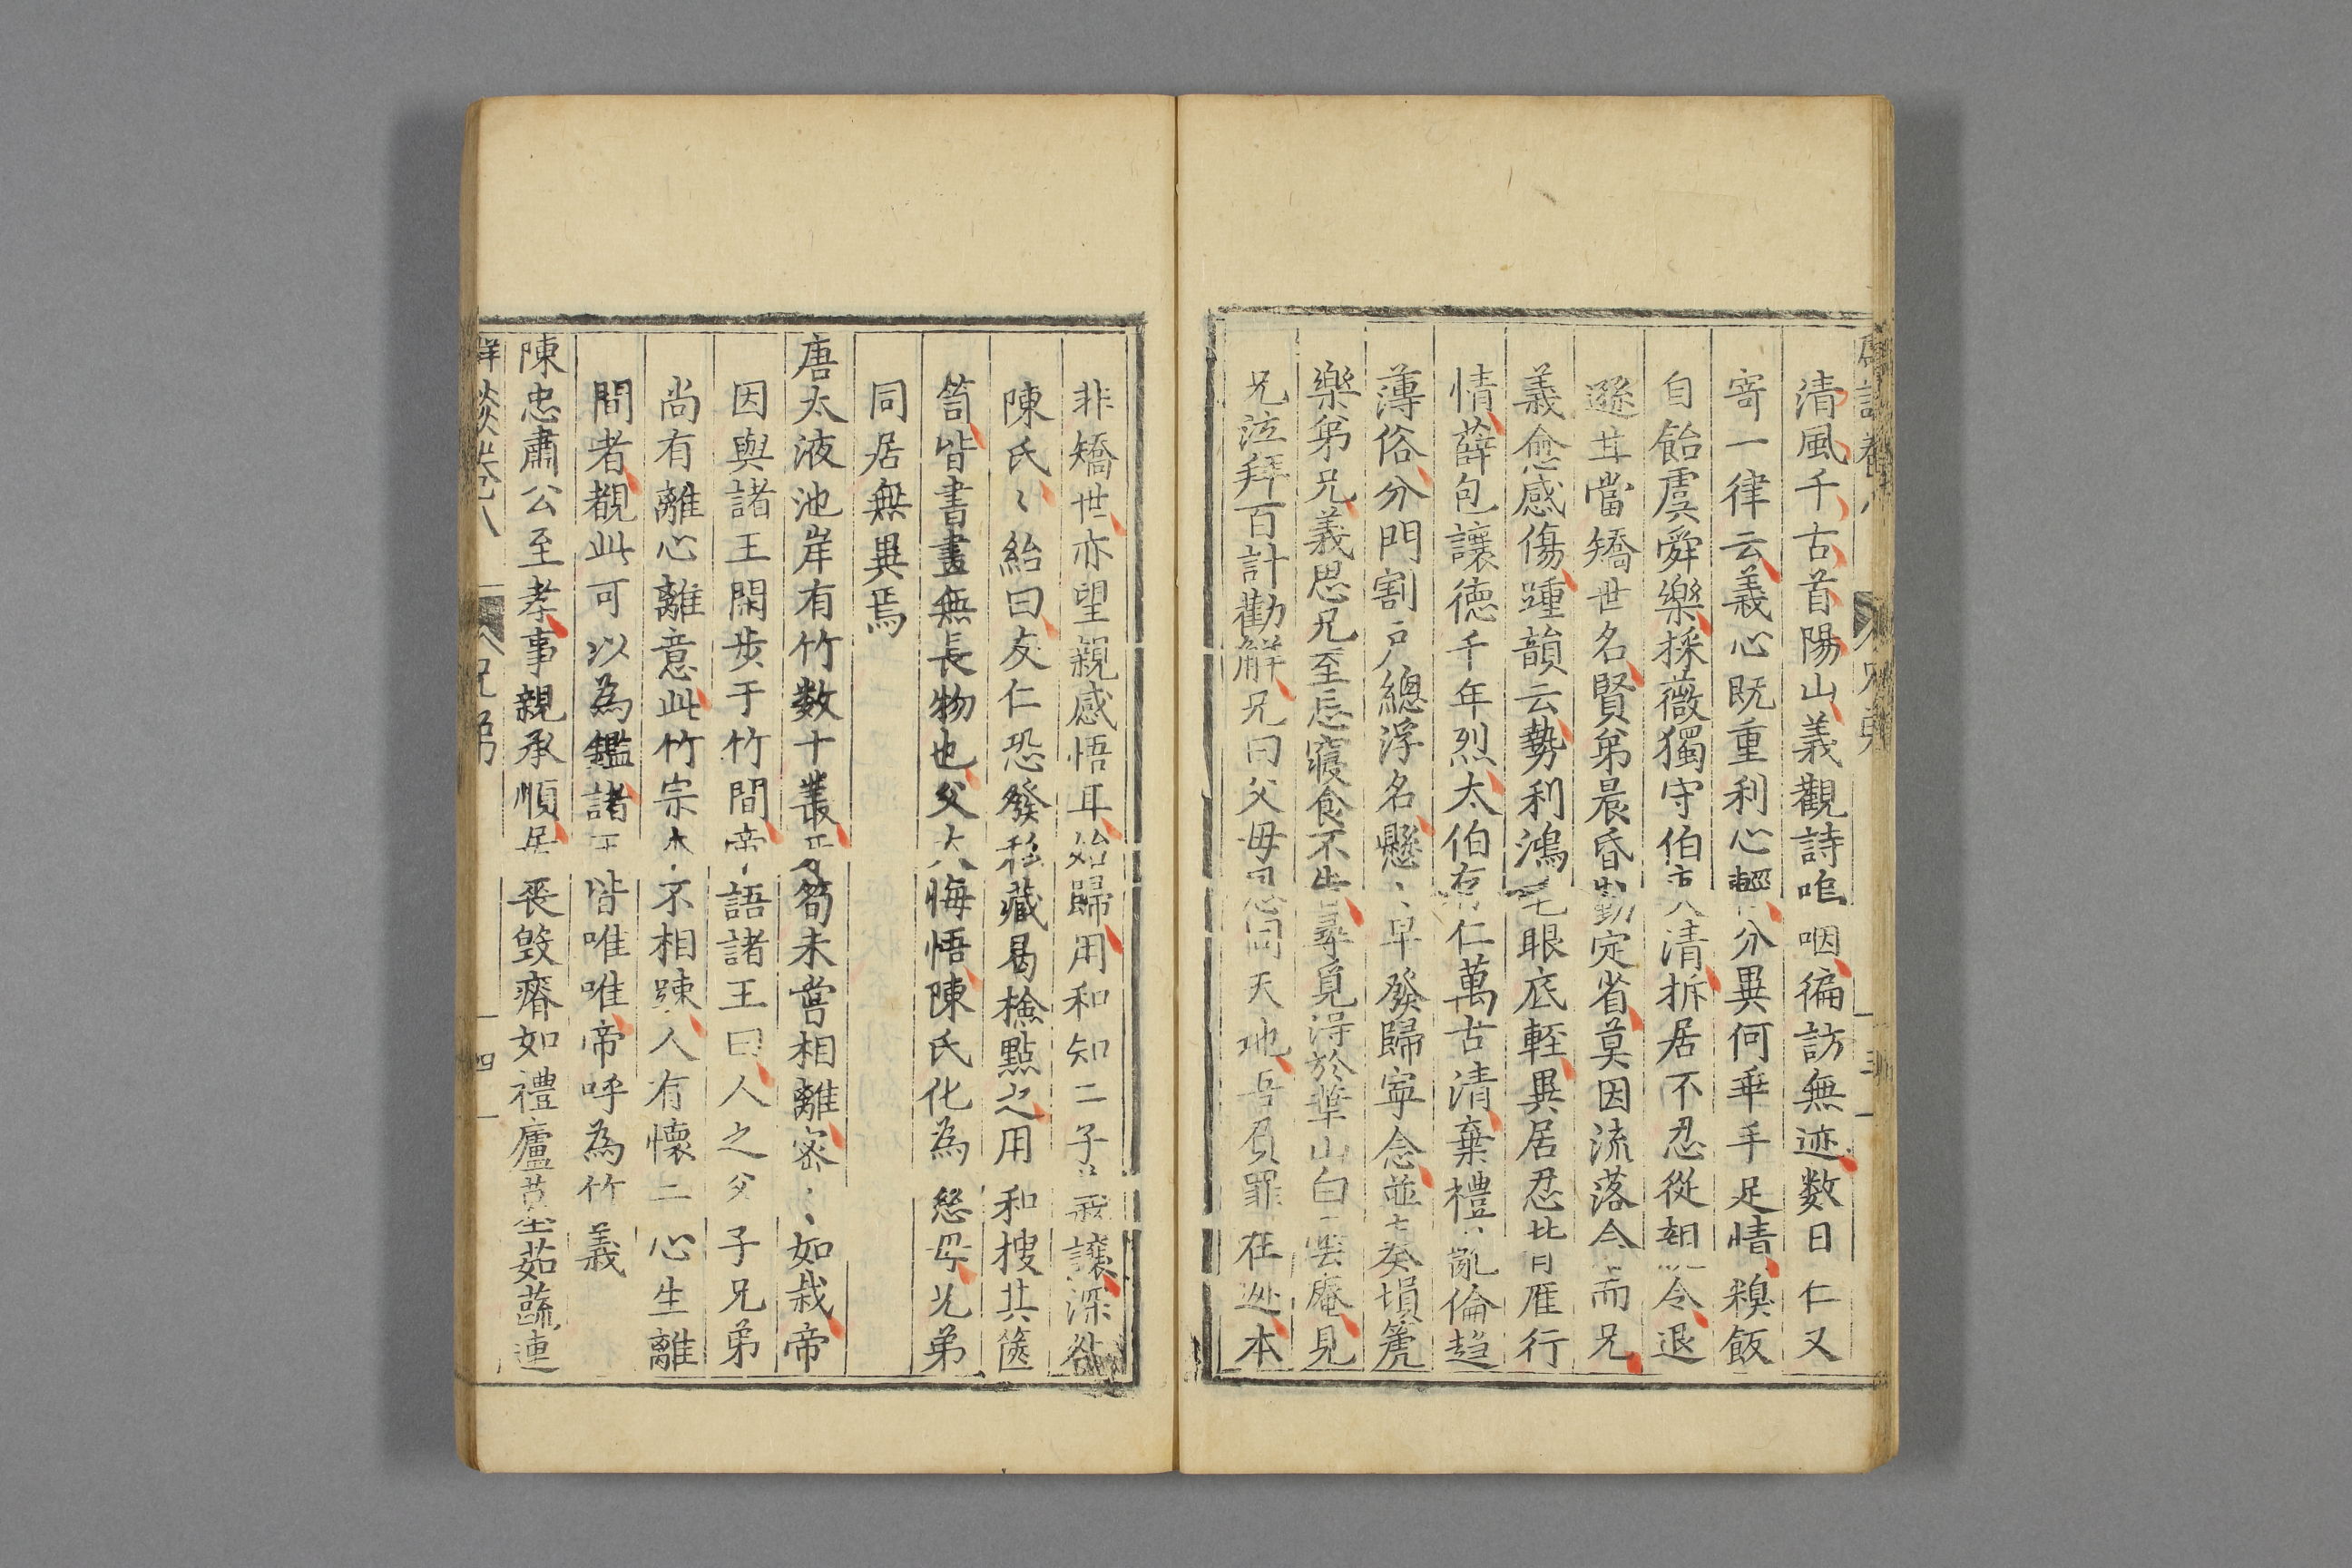 清風千古首陽山義觀詩唯咽徧訪無迹数日仁又
寄一律云義心既重利心輕分異何乖手足情糗飯
自飴虞舜樂採薇獨守伯夷清拆居不忍從朝令退
遜當矯世名賢弟晨昏勤定省莫因流落今而兄
義愈感傷踵韻云勢利鴻毛眼底輊異居忍比日雁行
情薛包讓徳千年烈太伯存仁萬古清棄禮亂倫趋
薄俗分門割戸總浮名懸〻早發歸寜念並奏塤箎
樂弟兄義思兄至忘寢食不告尋覓淂於華山白雲庵見
兄泣拜百計勸觧兄曰父母恩同天地吾負罪在逊本
非矯世亦望親感悟耳始歸用和知二子讓深欲
陳氏〻紿曰友仁恐發私藏曷撿㸃之用和搜其篋
笥皆書畫無長物也父大悔悟陳氏化為慈母兄弟
同居無異焉
唐太液池岸有竹数十叢牙筍未嘗相離宻〻如栽帝
因與諸王閑步于竹間帝語諸王曰人之父子兄弟
尚有離心離意此竹宗本不相踈人有懐二心生離
間者覩此可以為鑑諸王皆唯唯帝呼為竹義
陳忠肅公至孝事親承順居喪毀瘠如禮廬墓茹蔬連
群談卷八 兄弟 四